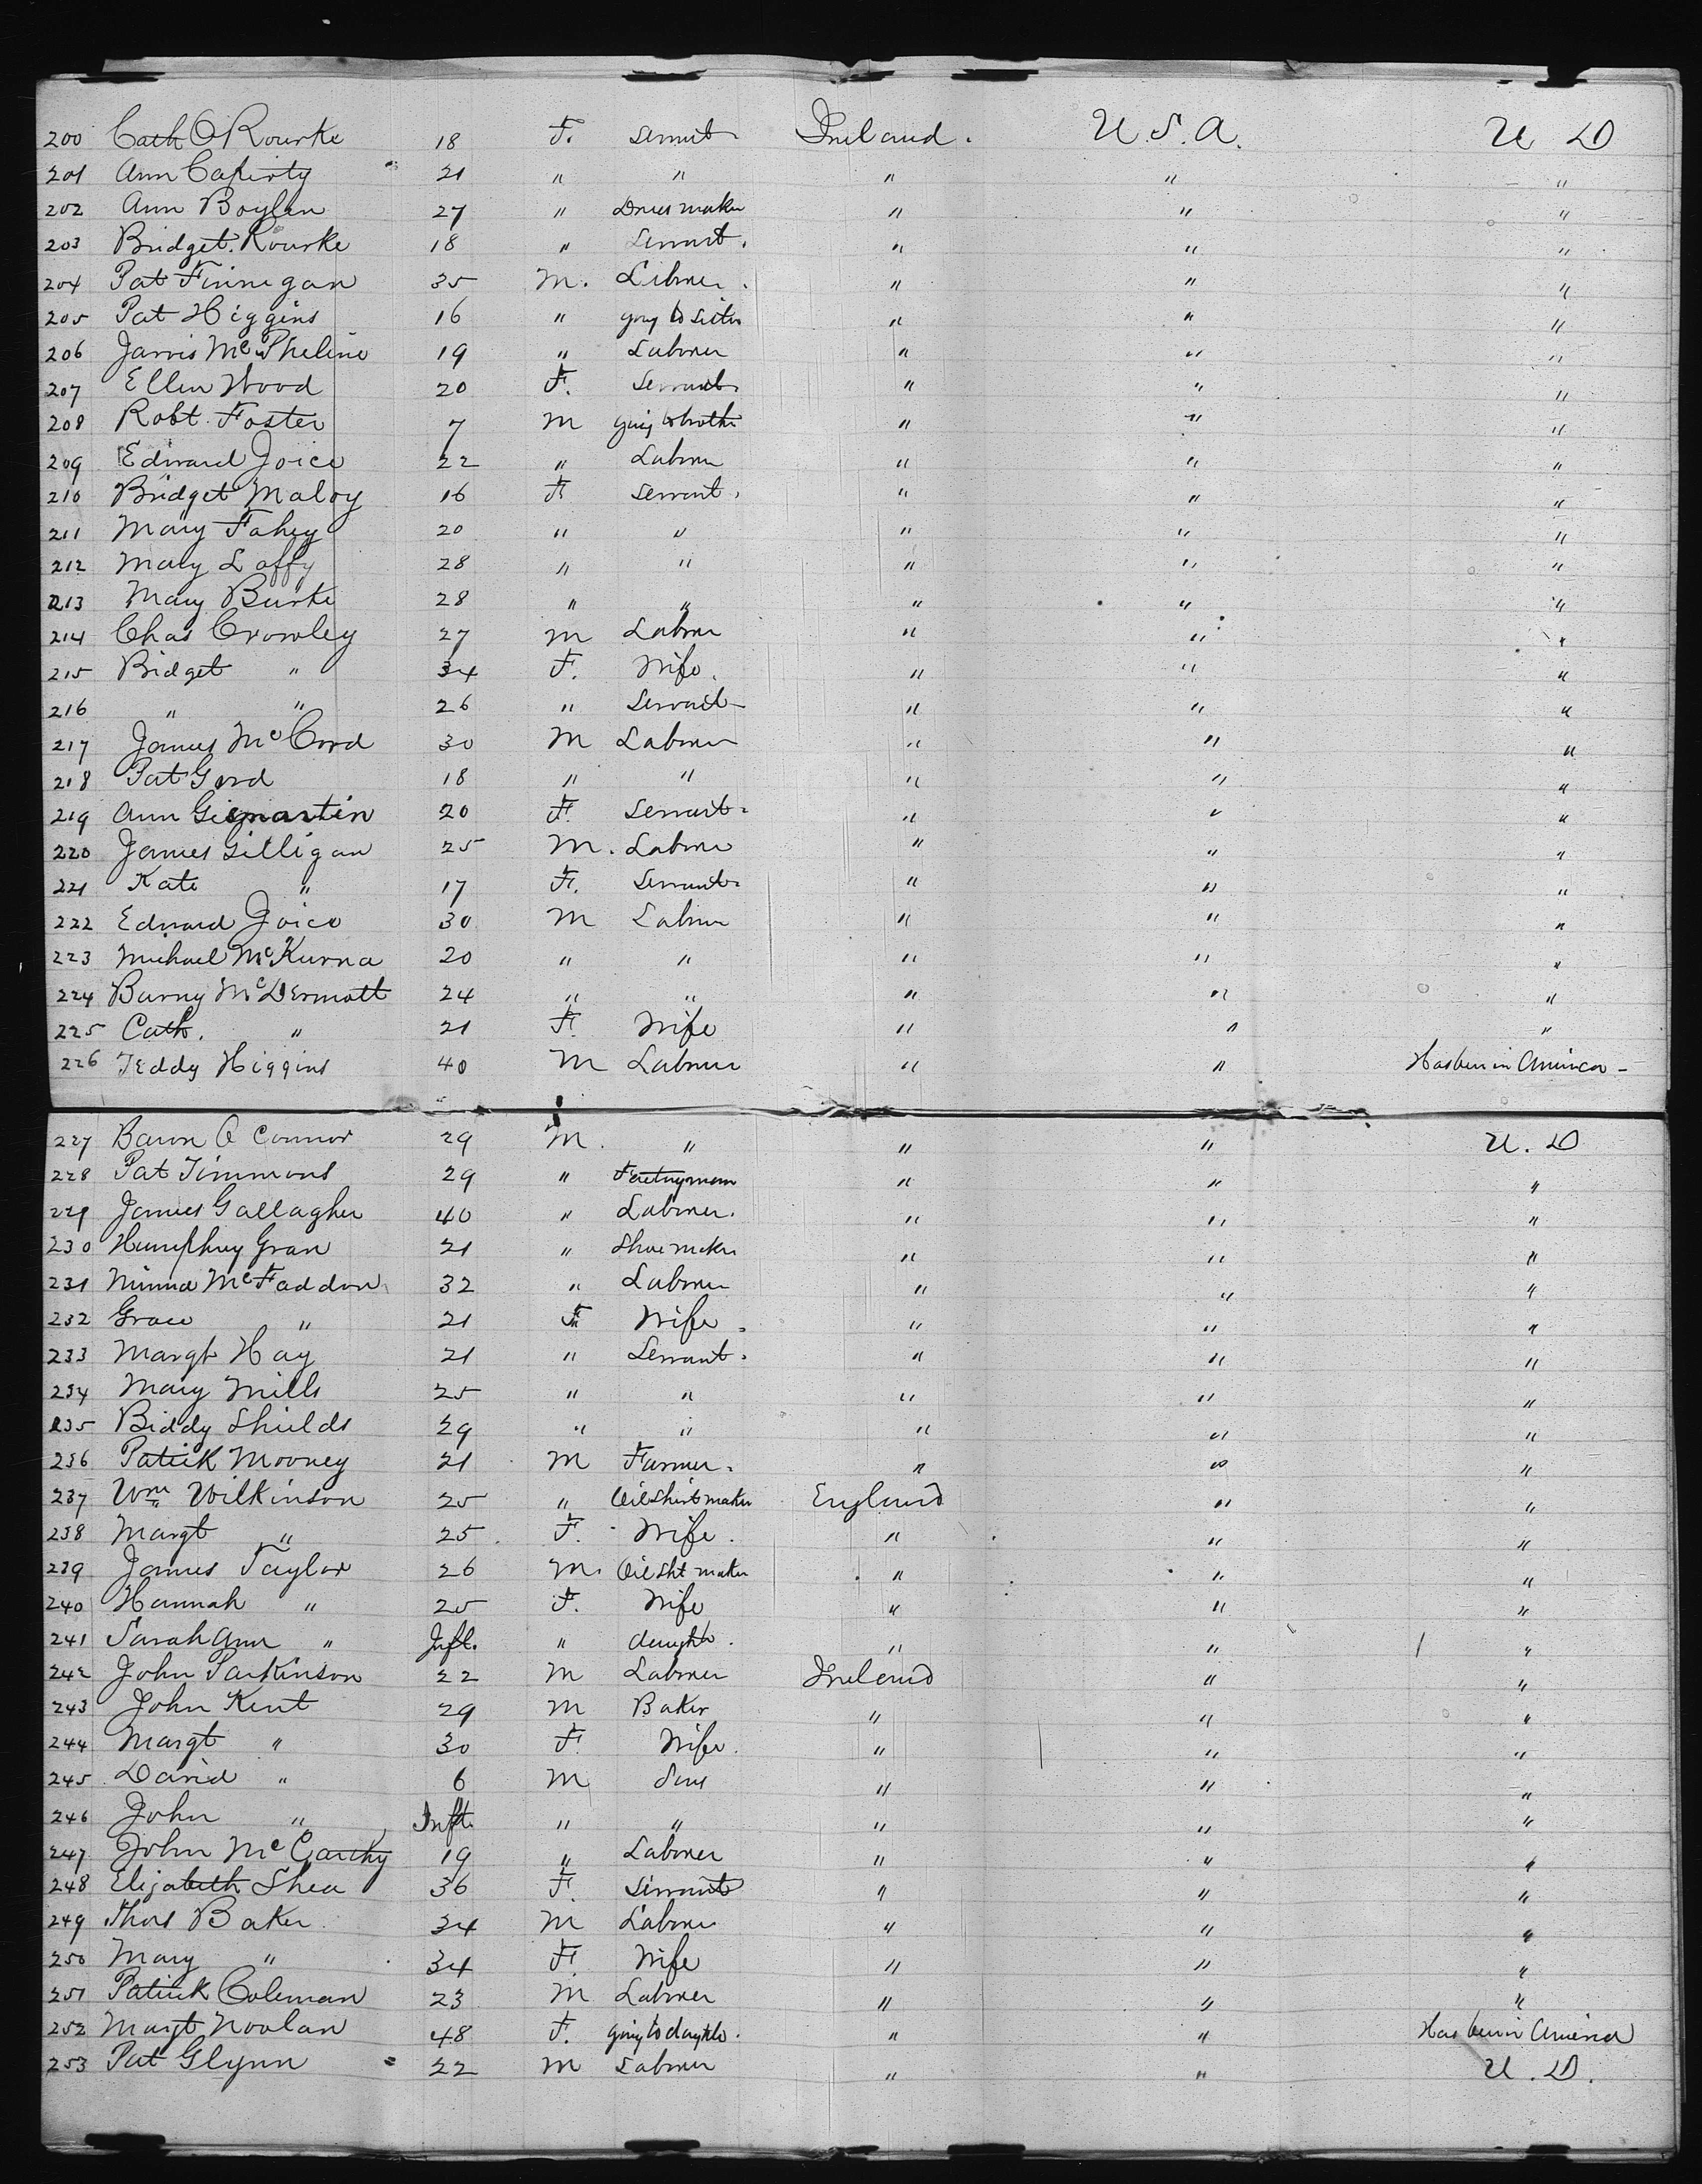 200 Cath O Rourke 18 F. Servnt Ireland. U.S.A. U D
201 Ann Cafirty 21 " " " " "
202 Ann Boylen 27 " Dressmaker " " "
203 Bridget Rourke 18 " Servant. " " "
204 Pat Finnegan 35 M. Labourer. " " "
205 Pat Higgins 16 " going to sister " " "
206 Jarvis McPheline 19 " Labourer " " "
207 Ellen Wood 20 F. Servant " " "
208 Robt. Foster 7 M going to brother " " "
209 Edward Joice 22 " Labourer " " "
210 Bridget Maloy 16 F Servant. " " "
211 Mary Fahey 20 " " " " "
212 Mary Laffy 28 " " " " "
213 Mary Burke 28 " " " " "
214 Chas Crowley 27 M Labourer " " "
215 Bridget " 34 F. Wife. " " "
216 " " 26 " Servant " " "
217 James McCord 30 M Labourer " " "
218 Pat Gord 18 " " " " "
219 Ann 20 F. Servant " " "
220 James Gilligan 25 M. Labourer " " "
221 Kate " 17 F. Servant " " "
222 Edward Joice 30 M Labourer " " "
223 Michael McKurna 20 " " " " "
224 Barny McDermott 24 " " " " "
225 Cath. " 21 F. Wife " " "
226 Teddy Higgins 40 M Labourer " " Has been in America -
227 Baron O Connor 29 M. " " " U. D
228 Pat Timmons 29 " Factryman " " "
229 James Gallagher 40 " Labourer. " " "
230 Humphrey Gran 21 " Shoemaker " " "
231 McFaddon 32 " Labourer " " "
232 Grace " 21 F Wife. " " "
233 Margt Hay 21 " Servant. " " "
234 Mary Mills 25 " " " " "
235 Biddy Shields 29 " " " " "
236 Patrick Mooney 21 M Farmer. " " "
237 Wm Wilkinson 25 " Oil Shirt maker England " "
238 Margt " 25. F. Wife. " " "
239 James Taylor 26 M. Oil Sht maker " " "
240 Hannah " 25 F. Wife " " "
241 Sarah Ann " Inft. " daughtr. " " "
242 John Parkinson 22 M Labourer Ireland " "
243 John Kent 29 M Baker " " "
244 Margt " 30 F. Wife. " " "
245 David " 6 M Son " " "
246 John " Inft. " " " " "
247 John McCarthy 19 " Labourer " " "
248 Elizabeth Shea 36 F. Servant " " "
249 Thos Baker 34 M Labourer " " "
250 Mary " 34 F. Wife " " "
251 Patrick Coleman 23 M Labourer " " "
252 Margt Noolan 48 F. going to daughtr. " " Has been in America
253 Pat Glynn 22 M Labourer " " U. D.